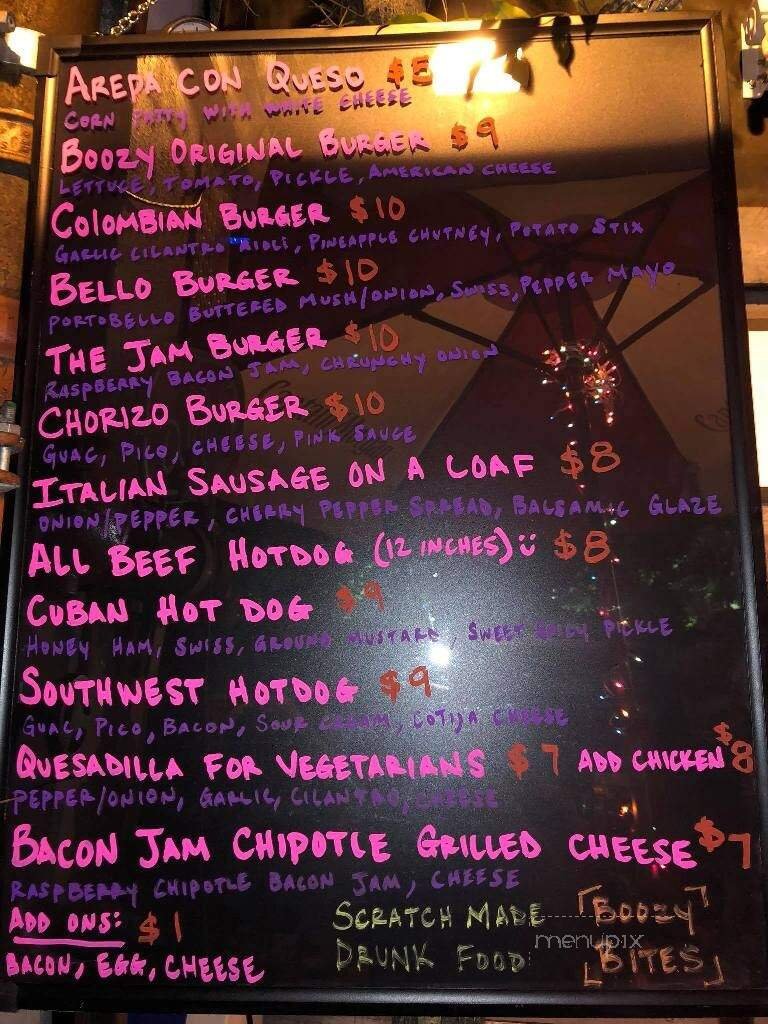 AREPA CON QUESO $5
CORN PATTY WITH WHITE CHEESE
BOOZY ORIGINAL BURGER $9
LETTUCE, TOMATO, PICKLE, AMERICAN CHEESE
COLOMBIAN BURGER $10
GARLIC CILANTRO AIOLI, PINEAPPLE CHUTNEY, POTATO STIX
BELLO BURGER $10
PORTOBELLO BUTTERED MUSH/ONION, SWISS, PEPPER MAYO
THE JAM BURGER $10
RASPBERRY BACON JAM, CHRUNCHY ONION
CHORIZO BURGER $10
GUAC, PICO, CHEESE, PINK SAUCE
ITALIAN SAUSAGE ON A LOAF $8
ONION/PEPPER, CHERRY PEPPER SPREAD, BALSAMIC GLAZE
ALL BEEF HOTDOG (12 INCHES) $8
CUBAN HOT DOG $9
HONEY HAM, SWISS, GROUND MUSTARD, SWEET SPICY PICKLE
SOUTHWEST HOTDOG $9
GUAC, PICO, BACON, SOUR CREAM, COTIJA CHEESE
QUESADILLA FOR VEGETARIANS $7 ADD CHICKEN $8
PEPPER/ONION, GARLIC, CILANTRO, CHEESE
BACON JAM CHIPOTLE GRILLED CHEESE $7
RASPBERRY CHIPOTLE BACON JAM, CHEESE
ADD ONS: $1
BACON, EGG, CHEESE
SCRATCH MADE "BOOZY
DRUNK FOOD BITES"
menupix